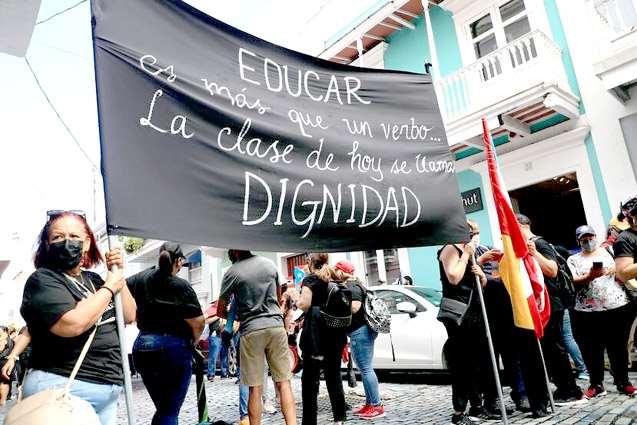 EDUCAR
es más que un verbo...
La clase de hoy se llama
DIGNIDAD